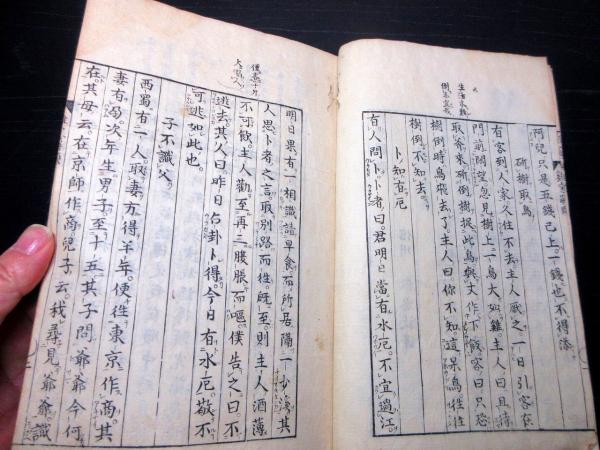 阿兒只是五錢已上一錢也不得添
斫樹取鳥
有客到人家久住不去主人厭之一日引客在
門前閑望忽見樹上一鳥大如雞主人曰且待
取斧來斫倒樹捉此鳥與丈作下飯客曰只恐
樹倒時鳥飛去了主人曰你不知這呆鳥往往
樹倒不知去
卜知有厄
有人問卜卜者曰君明日當有水厄不宜過江
明日果有一相識請早食而所居隔一
人思卜者之言取別路而往既至則主人酒薄
不可飲主人勸至再三腹脹而嘔僕告之曰不
逃去其人曰昨日占卦卜得今日有水厄敬不
可逃如此也
子不識父
西蜀有一人取妻方得半年便往東京作商其
妻有次年生男子至十五其子問爺爺今何
在其母云在京師作商兒子云我尋見爺爺識